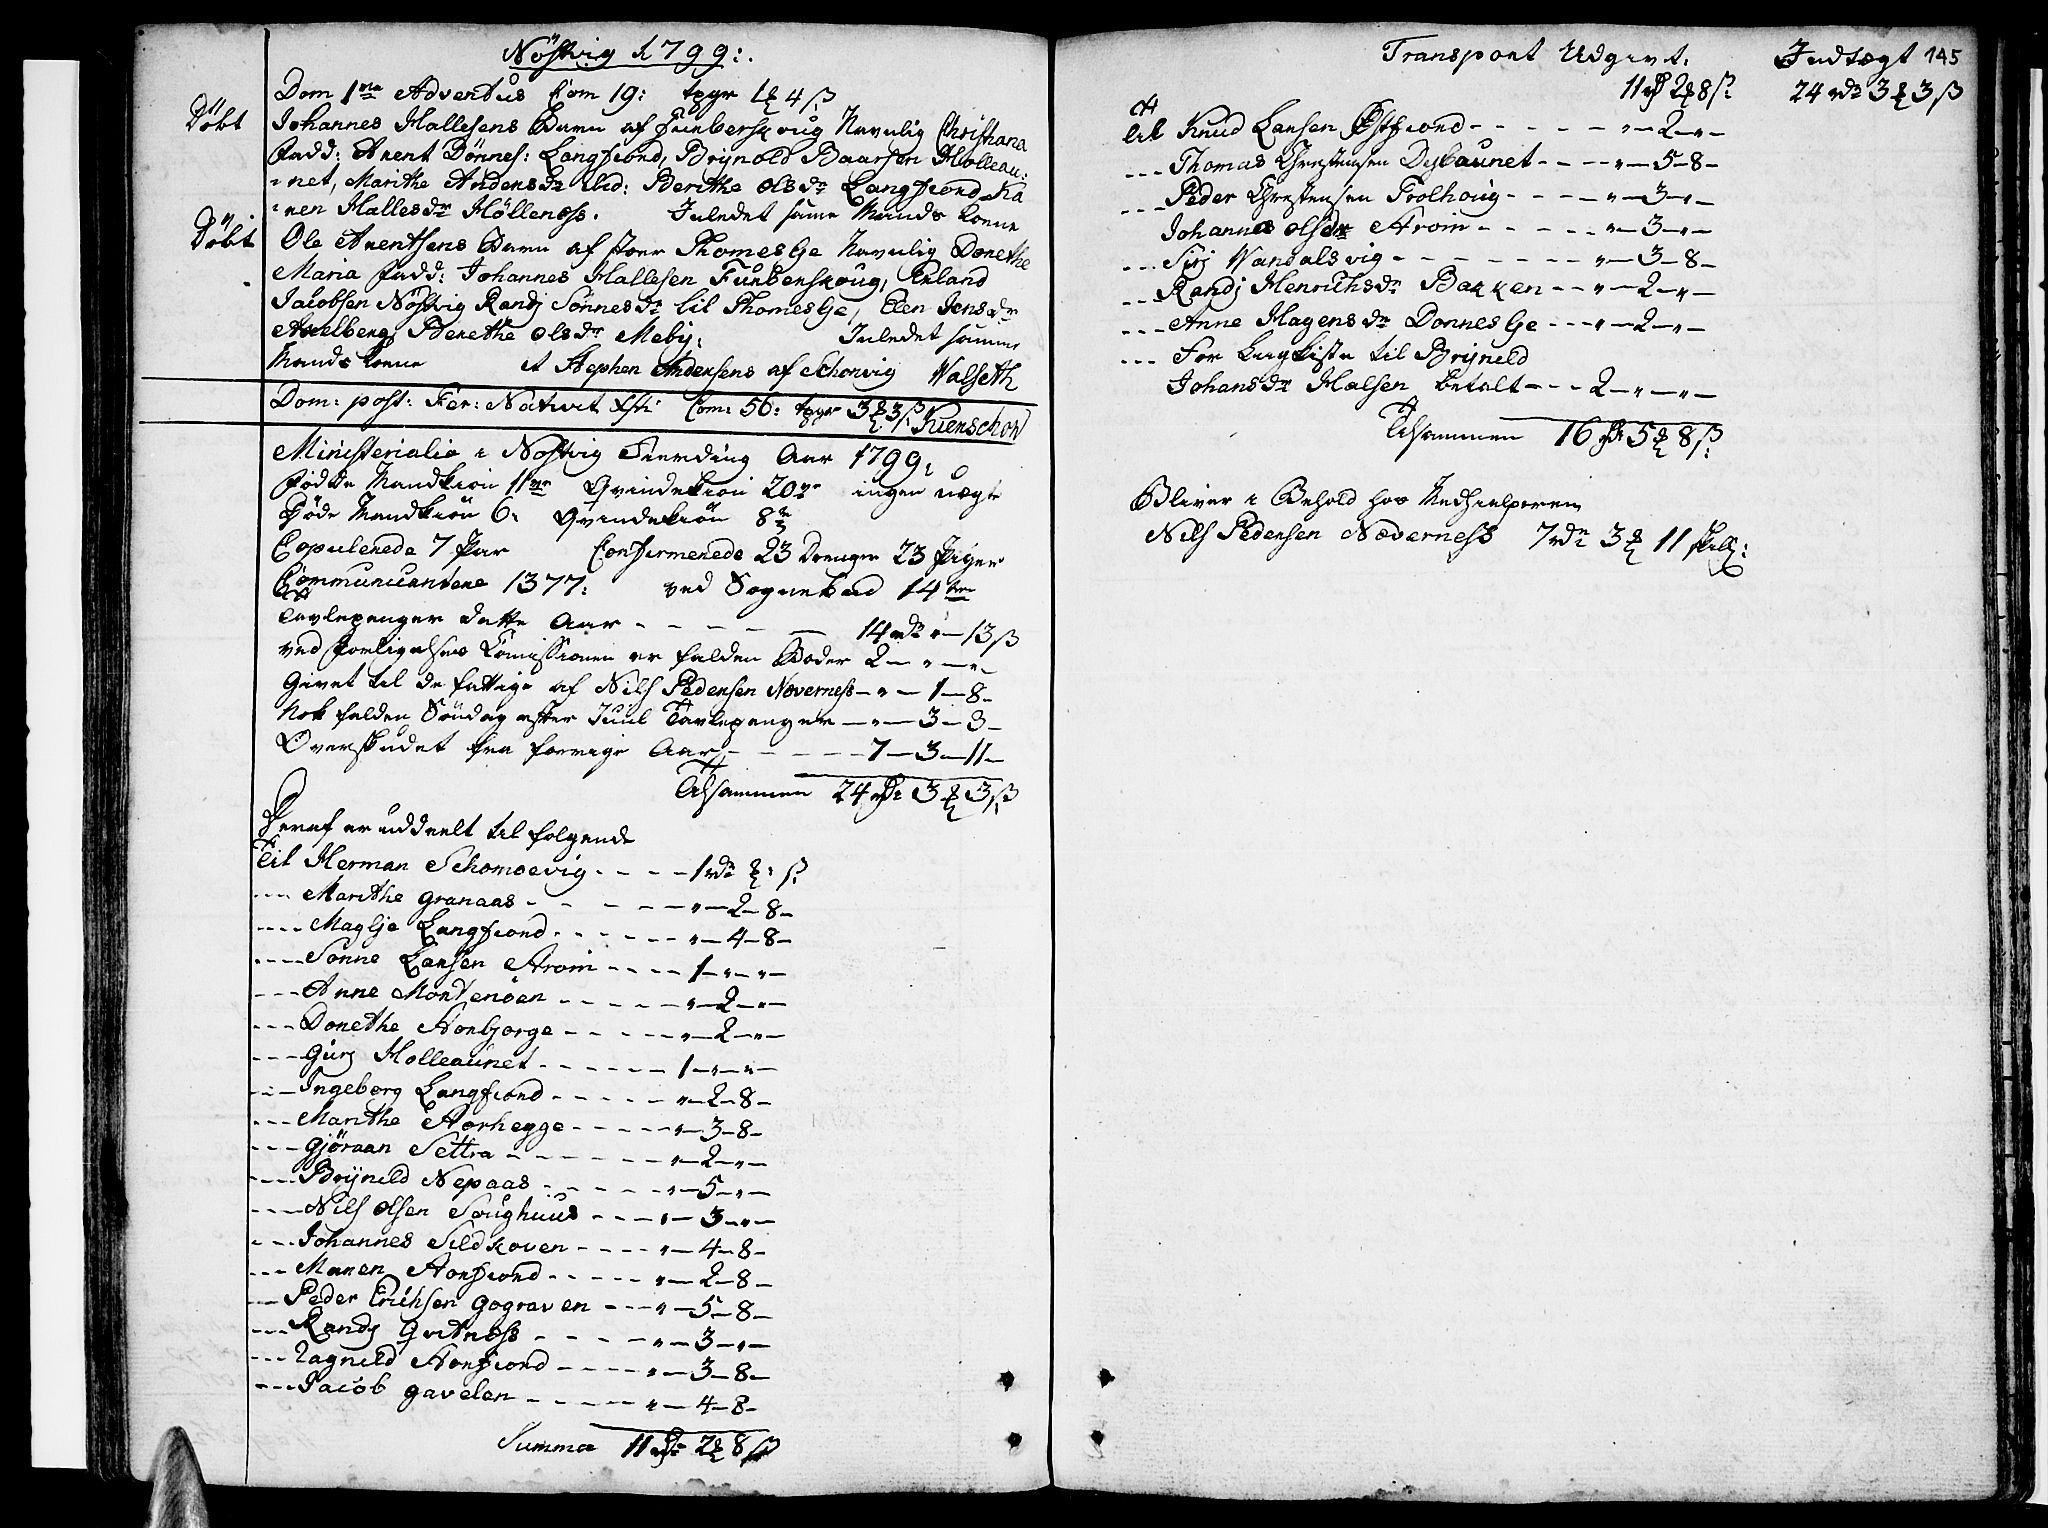 Nöstvig 1799:
Dom 1ma Adventus Com 19: tpgr 1 4 ß
Döbt
Johannes Hallesens Barn af Funberskoug Navnlig Christiana
Fadd: Arent Dönnes: Langfiord, Brijnold Baarsen Holleau:
:net, Marithe Andersdr ibid: Berithe Olsdr Langfiord, Ka
:ren Hallesdr Hölleness. Inledet samme Mands Kone
Döbt
Ole Arentsens Barn af Thomeslje Navnlig Dorethe
Maria Fadd: Johannes Hallesen Funberskoug, Erland
Jacobsen Nöstvig Randj Sönnesdr lil Thomeslje, Elen Jensdr
Axelberg Berethe Olsdr Mebij: Inledet samme
Mands Kone et Stephen Andersens af Schorvig Walseth
Dom: post: Fer: Nativit Xsti Com: 56: tpgr 3 3 ß Kierschow
Ministerialia i Nöstvig Fierding Aar 1799:
Födde Mandkiön 11ve Qvindekiön 20ve ingen uægte
Döde Mandkiön 6: Qvindekiön 8te
Copulerede 7 Par Confirmerede 23 Drenge 23 Piger
Communicantere 1377: ved Sognebud 14ten
Tavlepenger dette Aar - - - - - 14 rdr " - 13 ß
ved Forligelses Comissionen er falden Böder 2 - " - " -
Givet til de fattige af Nils Pedersen Noverness - " - 1 - 8 -
Nok falden Söndag efter Juul Tavlepenger - " - 3 - 3 -
Overskudet fra forrige Aar - - - - 7 - 3 - 11 -
Tilsammen 24 rdr 3 3 ß
Heraf er uddeelt til folgende
Til Herman Schomoevig - - - - 1 rdr " ß
--- Marithe Granaas - - - - - " - 2 - 8 -
--- Maglje Langfiord - - - - - " - 4 - 8 -
--- Sonne Larsen Aroin - - - - 1 - " - " -
--- Anne Montenöen - - - - - " - 2 - " -
--- Dorethe Horbjorge - - - - - " - 2 - " -
--- Gurj Holleaunet - - - - - - 1 - " - " -
--- Ingeborg Langfiord - - - - - " - 2 - 8 -
--- Marithe Horhegge - - - - - " - 3 - 8 -
--- Gjöraan Settra - - - - - - " - 2 - " -
--- Brijnild Nepaas - - - - - " - 5 - " -
--- Nils Olsen Soughuus - - - " - 3 - " -
--- Johannes Sildkoven - - - - " - 4 - 8 -
--- Maren Horsfiord - - - - - " - 2 - 8 -
--- Peder Erichsen Gograven - - - " - 5 - 8 -
--- Randj Qvitness - - - - - " - 3 - " -
--- Ragnild Horsfiord - - - - " - 3 - 8 -
--- Jacob Gavelen - - - - - " - 4 - 8 -
Summa 11 rdr 2 8 ß
Transport Udgivt: Indtægt 145
11 rd 2 8 ß 24 rdr 3 3 ß
til Knud Larsen Östfiord - - - - - " - 2 - " -
--- Thomas Christensen Dybaunet - - - - " - 5 - 8 -
--- Peder Christensen Trolhoug - - - - " - 3 - " -
Johanna Olsdr Aroin - - - - - " - 3 - " -
--- Sirj Wandalsvig - - - - - - - " - 3 - 8 -
--- Randj Henrichsdr Bakken - - " - 2 - " -
--- Anne Hagensdr Donneslje - - - " - 2 - " -
--- For Ligkiste til Brijneld
Johansdr Halsen betalt - - - 2 - " - " -
Tilsammen 16 rdr 5 8 ß
Bliver i Behold hos Medhielperen
Nils Pedersen Næverness 7 rdr 3 11 skill: